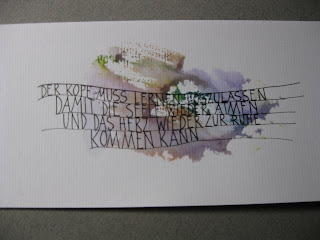 DER KOPF MUSS LERNEN LOSZULASSEN
DAMIT DIE SEELE WIEDER ATMEN
UND DAS HERZ WIEDER ZUR RUHE
KOMMEN KANN